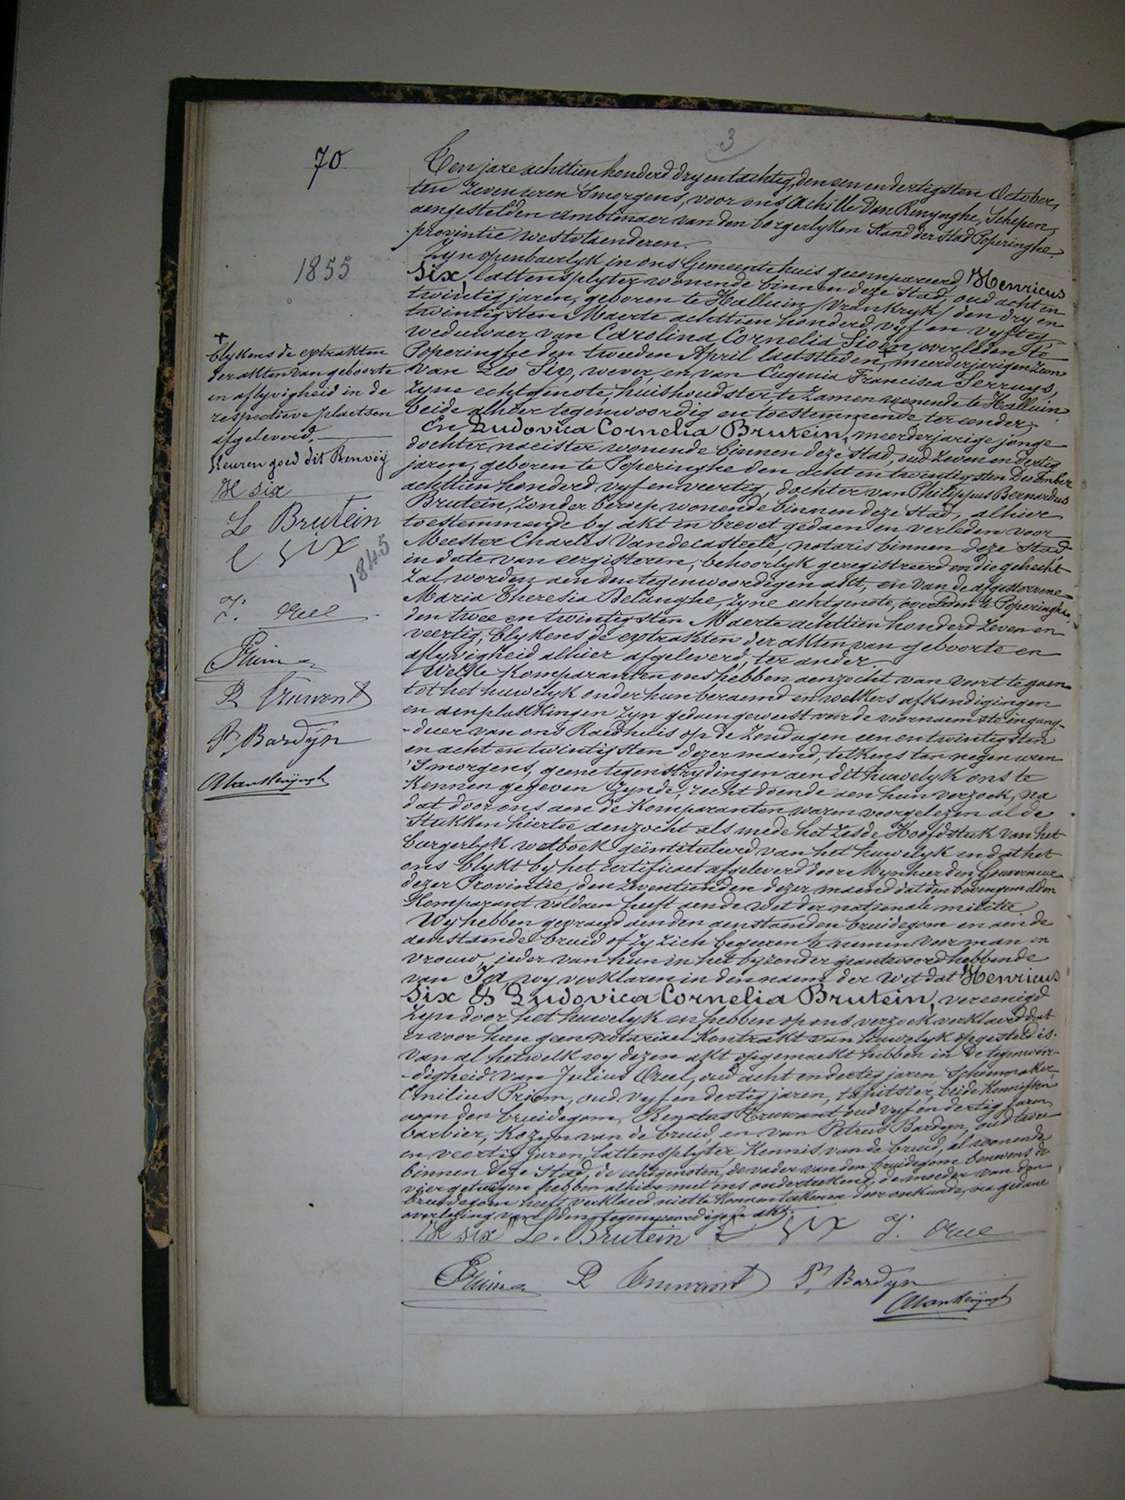 3
70
Ten jare achttien honderd dry en tachtig, den een en dertigsten October,
ten zeven uren smorgens, voor ons Achille Van Renynghe, Schepen,
aengestelden ambtenaer van den borgerlyken Stand der Stad Poperinghe
provintie westvlaenderen.
Zyn openbaerlyk in ons Gemeentehuis gecompareerd Henricus
Six, lattensplyter, wonende binnen deze Stad, oud acht en
twintig jaren, geboren te Halluin (Vrankryk) den dry en
twintigsten Maerte achttien honderd vyf en vyftig,
weduwaer van Carolina Cornelia Sioen, overleden te
Poperinghe den tweeden April laetstleden, meerderjarigen zoon
van Leo Six, wever, en van Eugenia Francisca Serruys,
zyne echtgenote, huishoudster, te zamen wonende te Halluin
beide alhier tegenwoordig en toestemmende, ter eender,
En Ludovica Cornelia Brutein, meerderjarige jonge
dochter, naeister, wonende binnen deze Stad, oud zeven en dertig
jaren, geboren te Poperinghe den acht en twintigsten December
achttien honderd vyf en veertig, dochter van Philippus Bernardus
Brutein, zonder beroep, wonende binnen deze Stad, alhier
toestemmende by akt in brevet gedaen en verleden voor
Meester Charles Vandecasteele, notaris binnen deze Stad
in date van eergisteren, behoorlyk geregistreerd en die gehecht
zal worden aen den tegenwoordigen akt, en van de afgestorvene
Maria Theresia Belanghe, zyne echtgenote, overleden te Poperinghe
den twee en twintigsten Maerte achttien honderd zeven en
veertig, blykens de extrakten der akten van geboorte en
aflyvigheid alhier afgeleverd, ter ander.
Welke Komparanten ons hebben aenzocht van voort te gaen
tot het huwelyk onder hun beraemd en welkers afkondigingen
en aenplakkingen zyn gedaen geweest voor de voornaemste ingang-
-deur van ons Raedhuis op de Zondagen een en twintigsten
en acht en twintigsten dezer maend, telkens ten negen uren
'Smorgens, geene tegenstrydingen aen dit huwelyk ons te
kennen gegeven zynde, recht doende aen hun verzoek, na
dat door ons aen de Komparanten waren voorgelezen al de
Stukken hiertoe aenzocht als mede het zesde Hoofdstuk van het
burgerlyk wetboek geïntituleerd van het huwelyk en dat het
ons blykt by het certificaet afgeleverd door Mynheer den Gouverneur
dezer Provintie, den zeventienden dezer maend dat den bovengemelden
Komparant voldaen heeft aen de wet der nationale militie.
Wy hebben gevraegd aen den aenstaenden bruidegom en aen de
aenstaende bruid of zy zich begeeren te nemen voor man en
vrouw, ieder van hun in het byzonder geantwoord hebbende
van Ja, wy verklaren in den naem der wet dat Henricus
Six & Ludovica Cornelia Brutein, vereenigd
zyn door het huwelyk en hebben op ons verzoek verklaerd dat
er voor hun geen notariael Kontrakt van huwelyk opgesteld is.
Van al hetwelk wy dezen akt opgemaekt hebben in de tegenwoor-
-digheid van Julius Oreel, oud acht en dertig jaren Schoenmaker,
Emilius Priem, oud vyf en dertig jaren, tapitsier, beide Kennissen
van den bruidegom, Renatus Cruwant, oud vyf en dertig jaren,
barbier, Kozyn van de bruid, en van Petrus Bardyn, oud twee
en veertig jaren, lattensplyter, Kennis van de bruid, al wonende
binnen deze Stad, de echtgenoten, de vader van den bruidegom benevens de
vier getuigen hebben alhier met ons onderteekend, de moeder van den
bruidegom heeft verklaerd niet te konnen teekenen door onkunde, na gedane
overlezing van den tegenwoordigen akt.
H six L. Brutein L Six J. Oreel
EPriem R Cruwant P. Bardyn
AVanRenynghe
1855
+
blykens de extrakten
der akten van geboorte
en aflyvigheid in de
respectieve plaetsen
afgeleverd,
Keuren goed dit Renvoy
H six
L. Brutein
L Six
1845
J. Oreel
EPriem
R Cruwant
P. Bardyn
AVanRenynghe